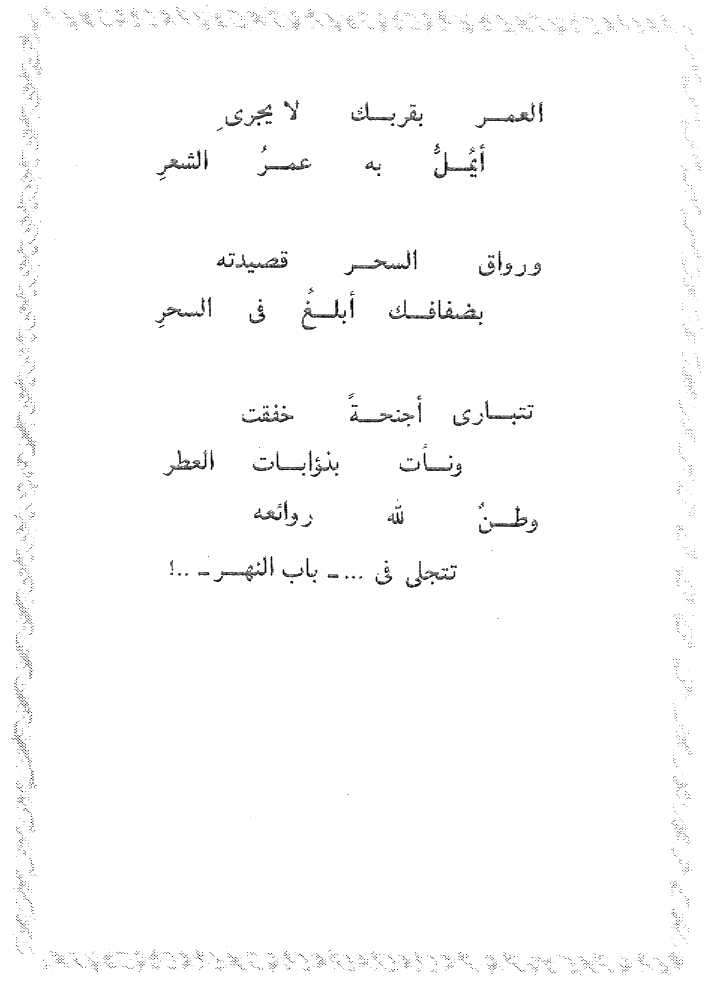 العمـــر بقربـــك لا يجرى
أيُمَـــلُّ به عمـــرُ الشعرِ
ورواق السحـــر قصيدته
بضفافـــك أبلـــغُ فى السحرِ
تتبـــارى أجنحـــةً خفقت
ونـــأت بذؤابـــات العطر
وطـــنٌ لله روائعه
تتجلى فى ... ـ باب النهـــر ـ ..!